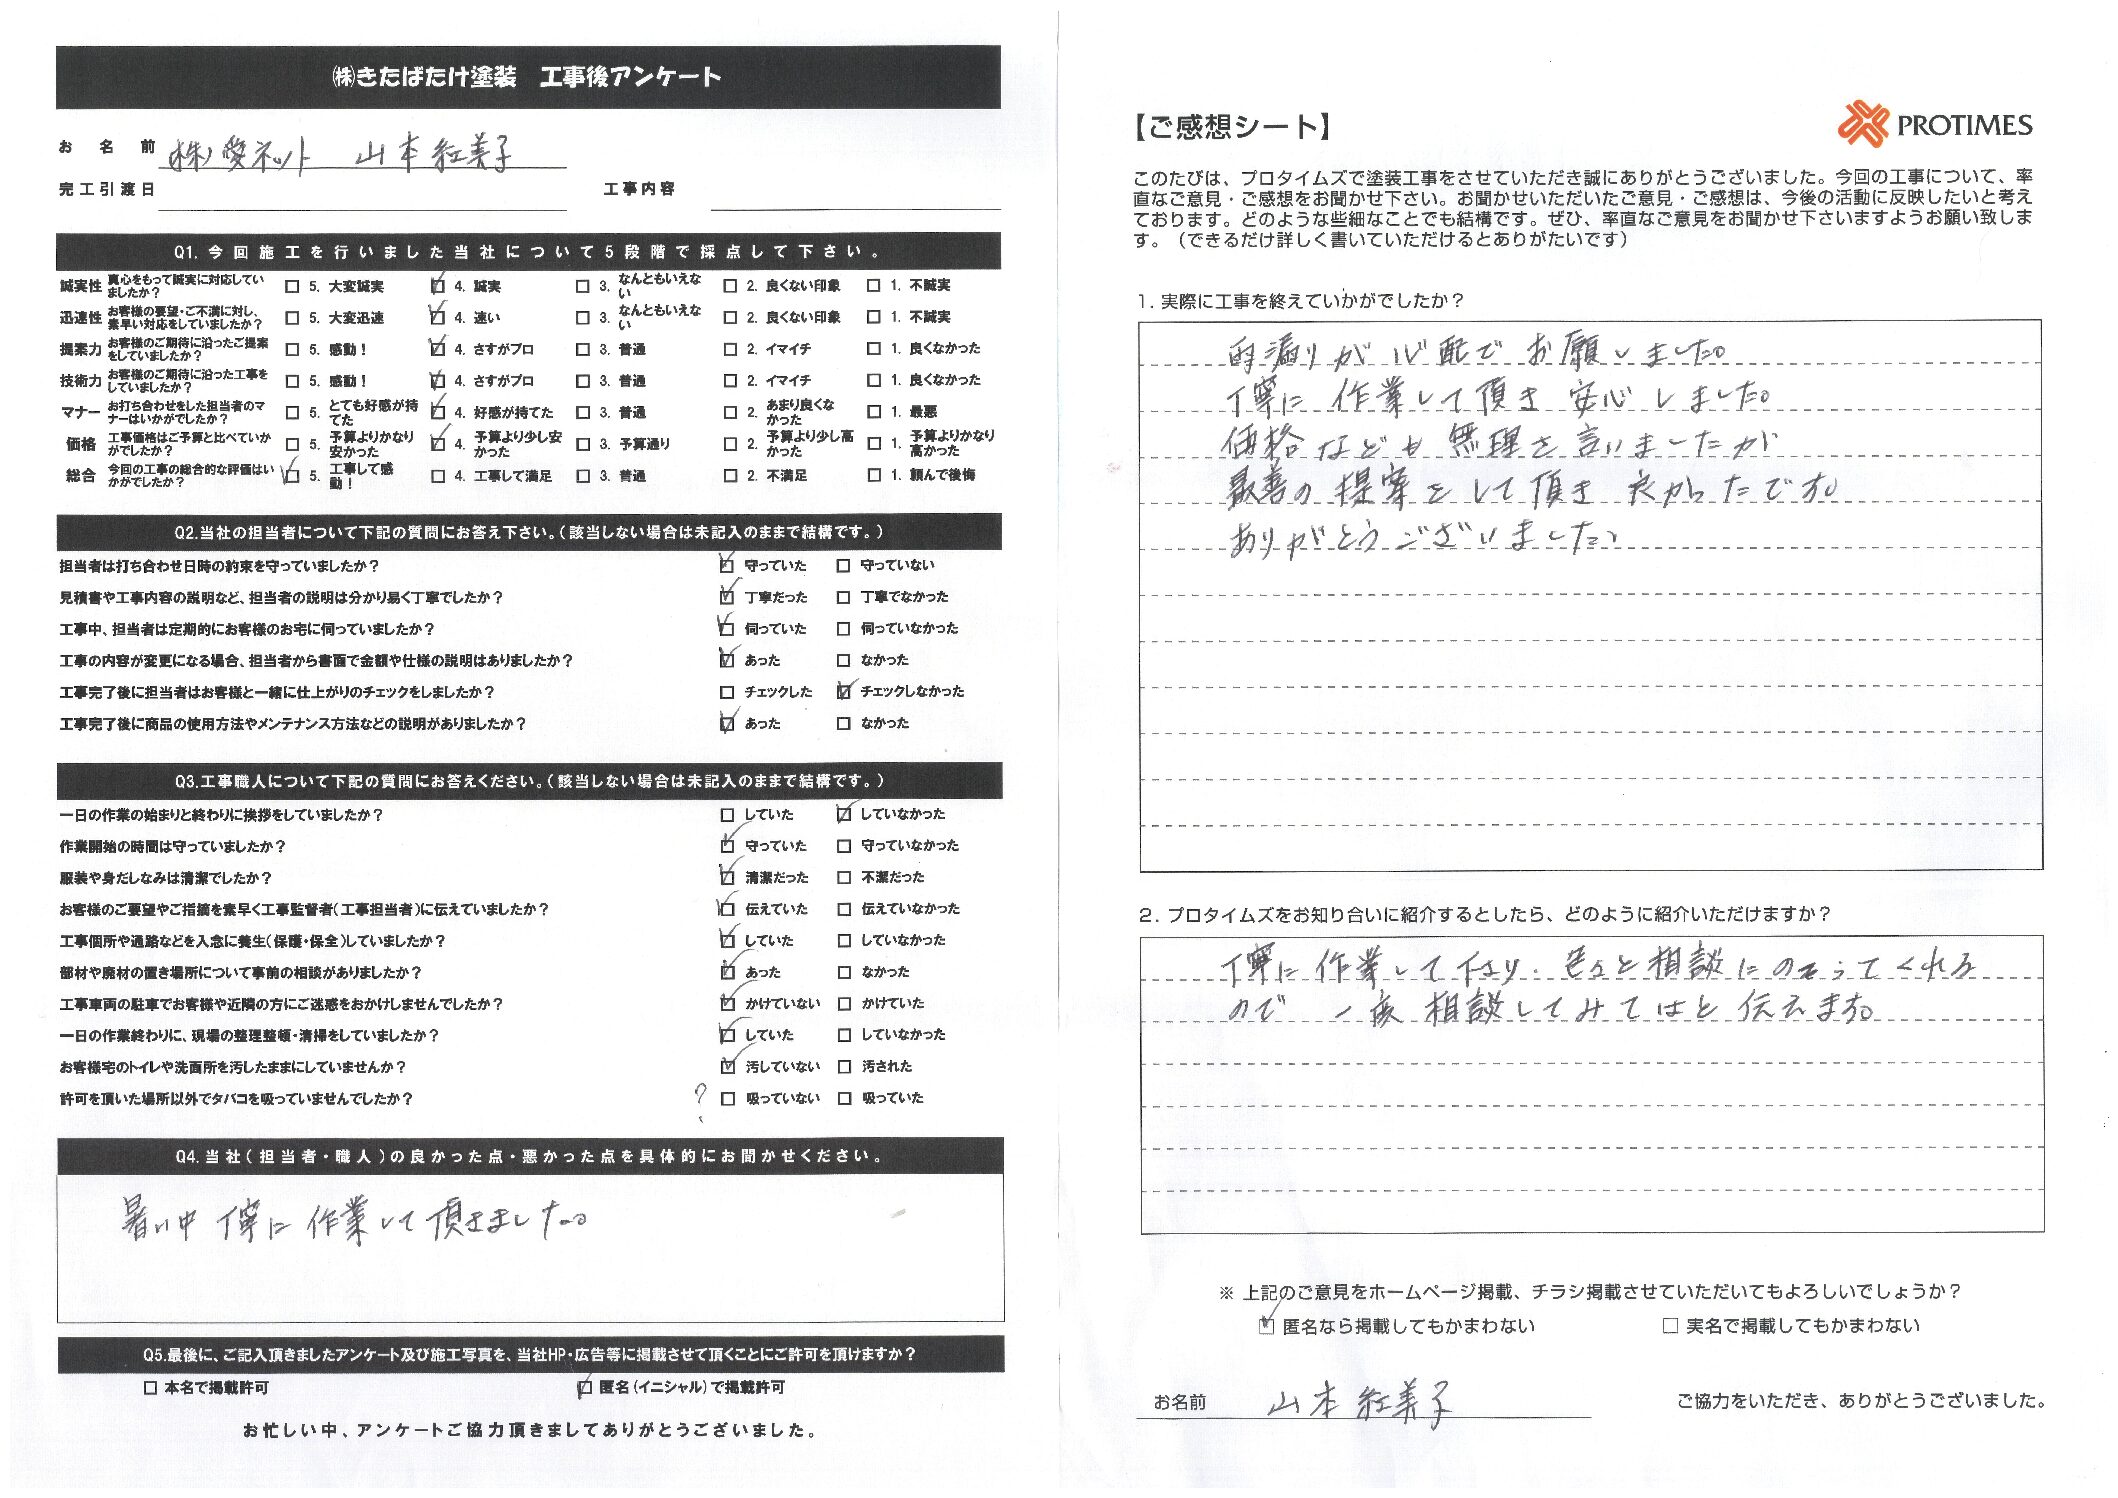 ㈱きたばたけ塗装 工事後アンケート
お名前 (株)愛ネット 山本紅美子
完工引渡日 工事内容
Q1.今回施工を行いました当社について5段階で採点して下さい。
誠実性 真心をもって誠実に対応していましたか? □ 5. 大変誠実 ☑ 4. 誠実 □ 3. なんともいえない □ 2. 良くない印象 □ 1. 不誠実
迅速性 お客様の要望・ご不満に対し、素早い対応をしていましたか? □ 5. 大変迅速 ☑ 4. 速い □ 3. なんともいえない □ 2. 良くない印象 □ 1. 不誠実
提案力 お客様のご期待に沿ったご提案をしていましたか? □ 5. 感動! ☑ 4. さすがプロ □ 3. 普通 □ 2. イマイチ □ 1. 良くなかった
技術力 お客様のご期待に沿った工事をしていましたか? □ 5. 感動! ☑ 4. さすがプロ □ 3. 普通 □ 2. イマイチ □ 1. 良くなかった
マナー お打ち合わせをした担当者のマナーはいかがでしたか? □ 5. とても好感が持てた ☑ 4. 好感が持てた □ 3. 普通 □ 2. あまり良くなかった □ 1. 最悪
価格 工事価格はご予算と比べていかがでしたか? □ 5. 予算よりかなり安かった ☑ 4. 予算より少し安かった □ 3. 予算通り □ 2. 予算より少し高かった □ 1. 予算よりかなり高かった
総合 今回の工事の総合的な評価はいかがでしたか? ☑ 5. 工事して感動! □ 4. 工事して満足 □ 3. 普通 □ 2. 不満足 □ 1. 頼んで後悔
Q2.当社の担当者について下記の質問にお答え下さい。(該当しない場合は未記入のままで結構です。)
担当者は打ち合わせ日時の約束を守っていましたか? ☑ 守っていた □ 守っていない
見積書や工事内容の説明など、担当者の説明は分かり易く丁寧でしたか? ☑ 丁寧だった □ 丁寧でなかった
工事中、担当者は定期的にお客様のお宅に伺っていましたか? ☑ 伺っていた □ 伺っていなかった
工事の内容が変更になる場合、担当者から書面で金額や仕様の説明はありましたか? ☑ あった □ なかった
工事完了後に担当者はお客様と一緒に仕上がりのチェックをしましたか? □ チェックした ☑ チェックしなかった
工事完了後に商品の使用方法やメンテナンス方法などの説明がありましたか? ☑ あった □ なかった
Q3.工事職人について下記の質問にお答えください。(該当しない場合は未記入のままで結構です。)
一日の作業の始まりと終わりに挨拶をしていましたか? □ していた ☑ していなかった
作業開始の時間は守っていましたか? ☑ 守っていた □ 守っていなかった
服装や身だしなみは清潔でしたか? ☑ 清潔だった □ 不潔だった
お客様のご要望やご指摘を素早く工事監督者(工事担当者)に伝えていましたか? ☑ 伝えていた □ 伝えていなかった
工事個所や通路などを入念に養生(保護・保全)していましたか? ☑ していた □ していなかった
部材や廃材の置き場所について事前の相談がありましたか? ☑ あった □ なかった
工事車両の駐車でお客様や近隣の方にご迷惑をおかけしませんでしたか? ☑ かけていない □ かけていた
一日の作業終わりに、現場の整理整頓・清掃をしていましたか? ☑ していた □ していなかった
お客様宅のトイレや洗面所を汚したままにしていませんか? ☑ 汚していない □ 汚された
許可を頂いた場所以外でタバコを吸っていませんでしたか? ? □ 吸っていない □ 吸っていた
Q4.当社(担当者・職人)の良かった点・悪かった点を具体的にお聞かせください。
暑い中 丁寧に 作業して 頂きました。
Q5.最後に、ご記入頂きましたアンケート及び施工写真を、当社HP・広告等に掲載させて頂くことにご許可を頂けますか?
□ 本名で掲載許可 ☑ 匿名(イニシャル)で掲載許可
お忙しい中、アンケートご協力頂きましてありがとうございました。
【ご感想シート】
PROTIMES
このたびは、プロタイムズで塗装工事をさせていただき誠にありがとうございました。今回の工事について、率
直なご意見・ご感想をお聞かせ下さい。お聞かせいただいたご意見・ご感想は、今後の活動に反映したいと考え
ております。どのような些細なことでも結構です。ぜひ、率直なご意見をお聞かせ下さいますようお願い致しま
す。(できるだけ詳しく書いていただけるとありがたいです)
1. 実際に工事を終えていかがでしたか?
雨漏りが心配でお願いしました。
丁寧に 作業して頂き 安心しました。
価格なども 無理を言いましたが
最善の提案をして頂き 良かったです。
ありがとうございました。
2. プロタイムズをお知り合いに紹介するとしたら、どのように紹介いただけますか?
丁寧に作業して下さり、色々と相談にのってくれる
ので 一度 相談してみてはと 伝えます。
※ 上記のご意見をホームページ掲載、チラシ掲載させていただいてもよろしいでしょうか?
☑ 匿名なら掲載してもかまわない □ 実名で掲載してもかまわない
お名前 山本紅美子 ご協力をいただき、ありがとうございました。